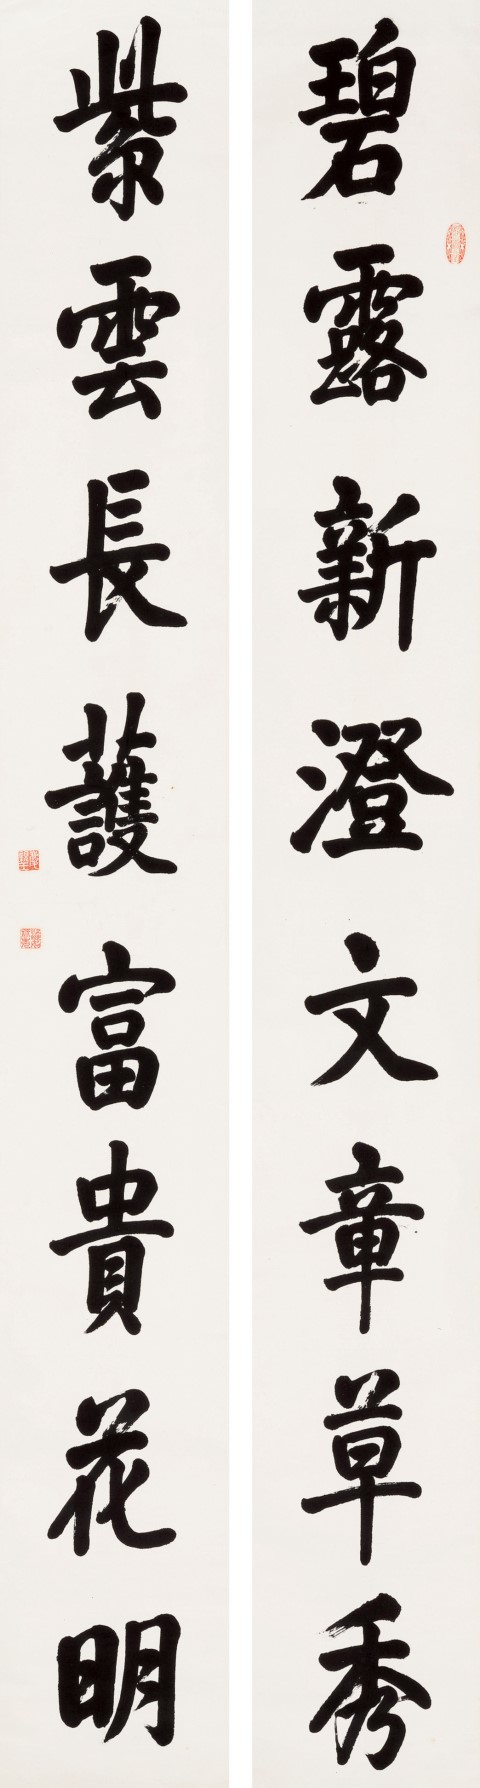 碧露新澄文章草秀
紫雲長護富貴花明